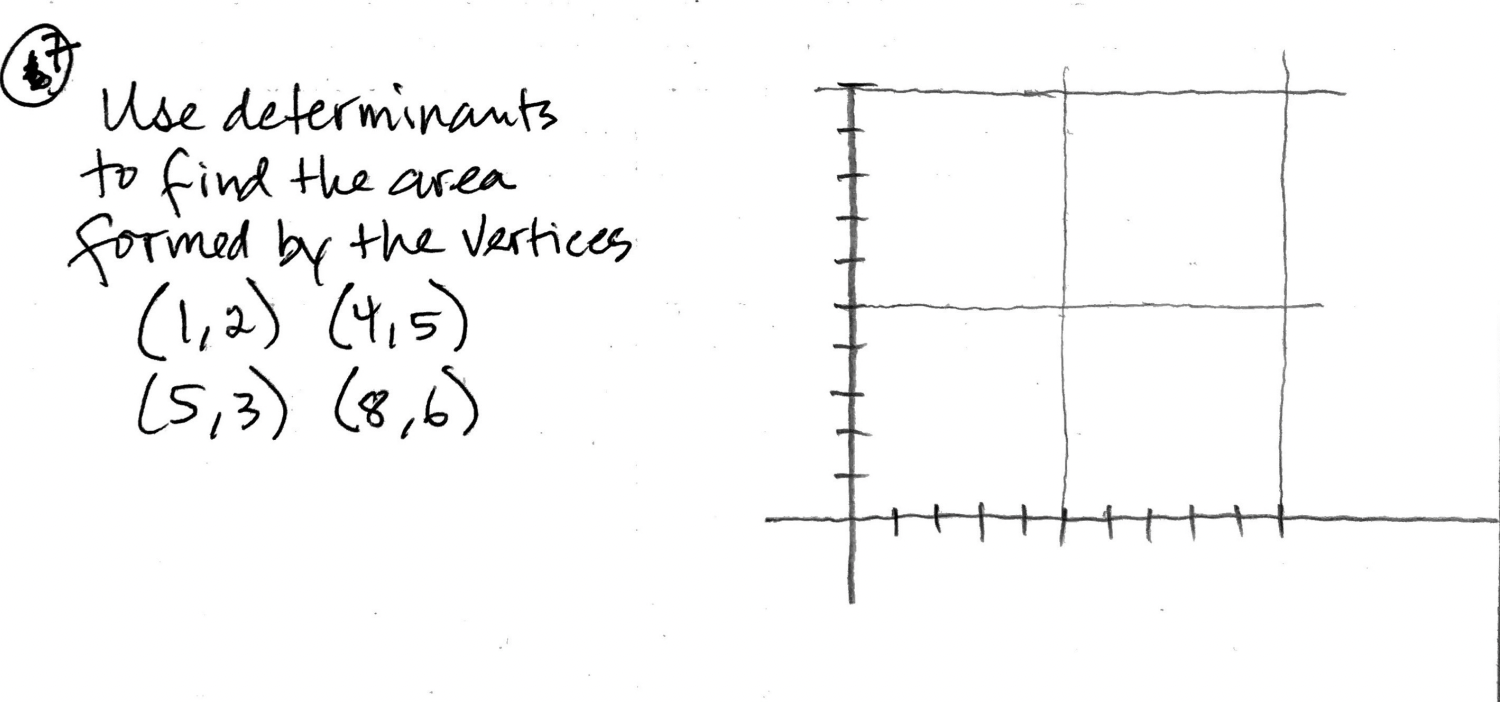 7
Use determinants
to find the area
formed by the vertices
(1,2) (4,5)
(5,3) (8,6)